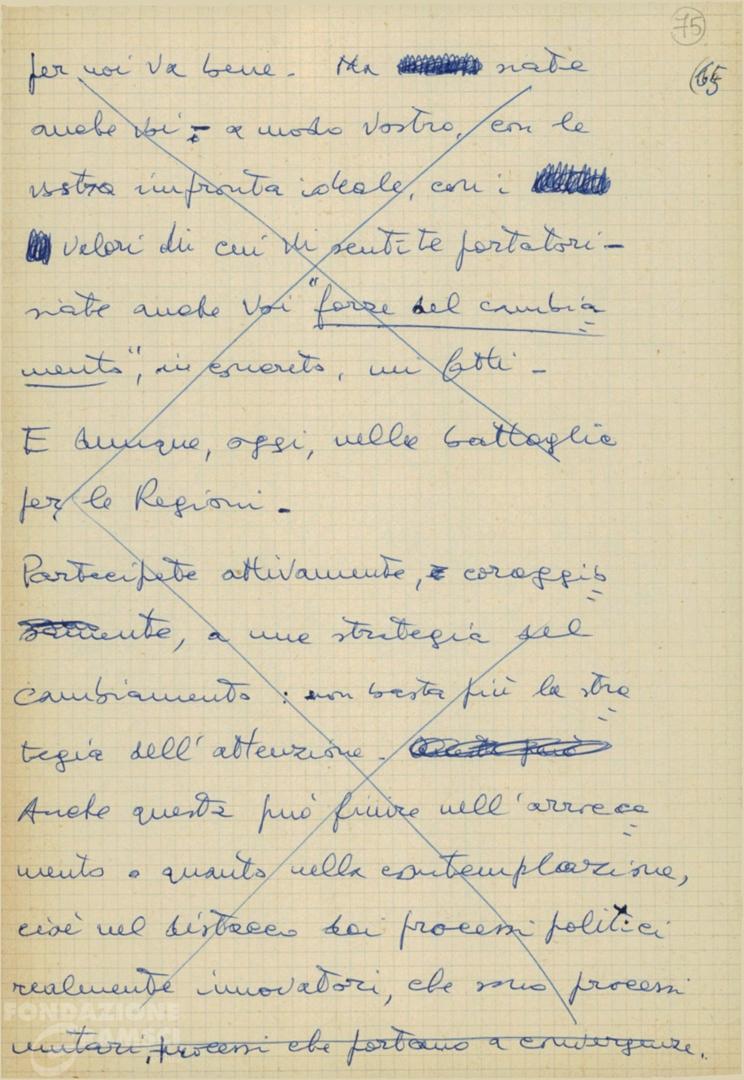 75
per noi va bene. Ma siate
65
anche voi - a modo vostro, con la
vostra impronta ideale, con i
valori di cui vi sentite portatori -
siate anche voi "forze del cambia
mento", in concreto, nei fatti -
E dunque, oggi, nella battaglia
per le Regioni.
Partecipate attivamente, e coraggio
samente, a una strategia del
cambiamento: non basta più la stra
tegia dell'attenzione.
Anche questa può finire nell'arrocca
mento o quanto nella contemplazione,
cioè nel distacco dai processi politici
realmente innovatori, che sono processi
unitari, processi che portano a convergenze.
FONDAZIONE
GRAMSCI